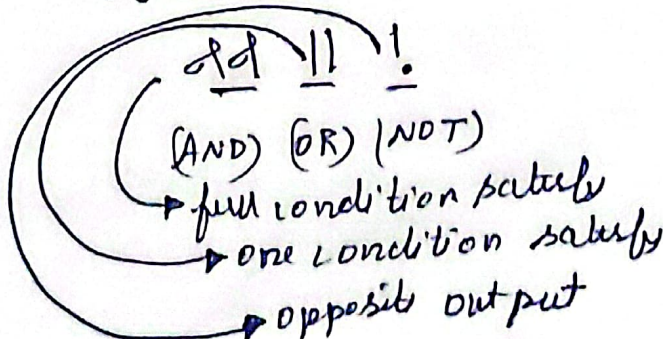 && || !
(AND) (OR) (NOT)
full condition satisfy
one condition satisfy
opposite output